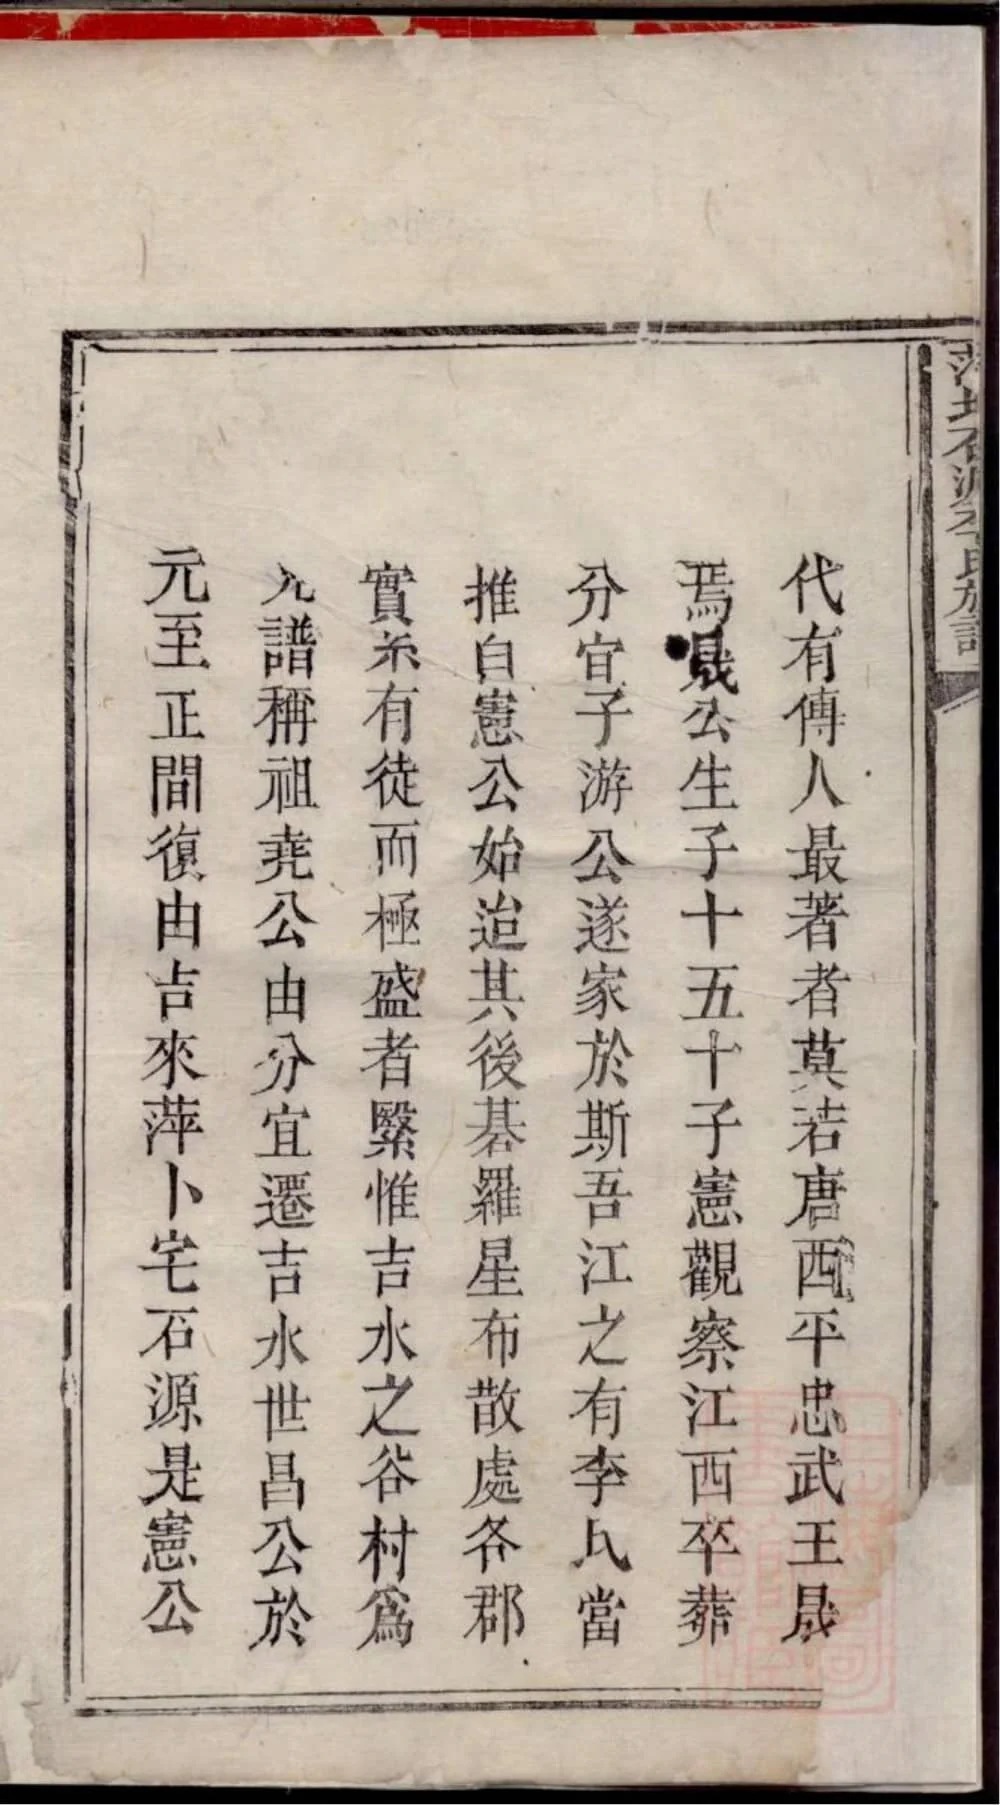 代有傳人最著者莫若唐西平忠武王晟
焉晟公生子十五十子憲觀察江西卒葬
分宜子游公遂家於斯吾江之有李氏當
推自憲公始迨其後碁羅星布散處各郡
實系有徒而極盛者緊惟吉水之谷村為
尤譜稱祖堯公由分宜遷吉水世昌公於
元至正間復由吉來萍卜宅石源是憲公
石源李氏族譜